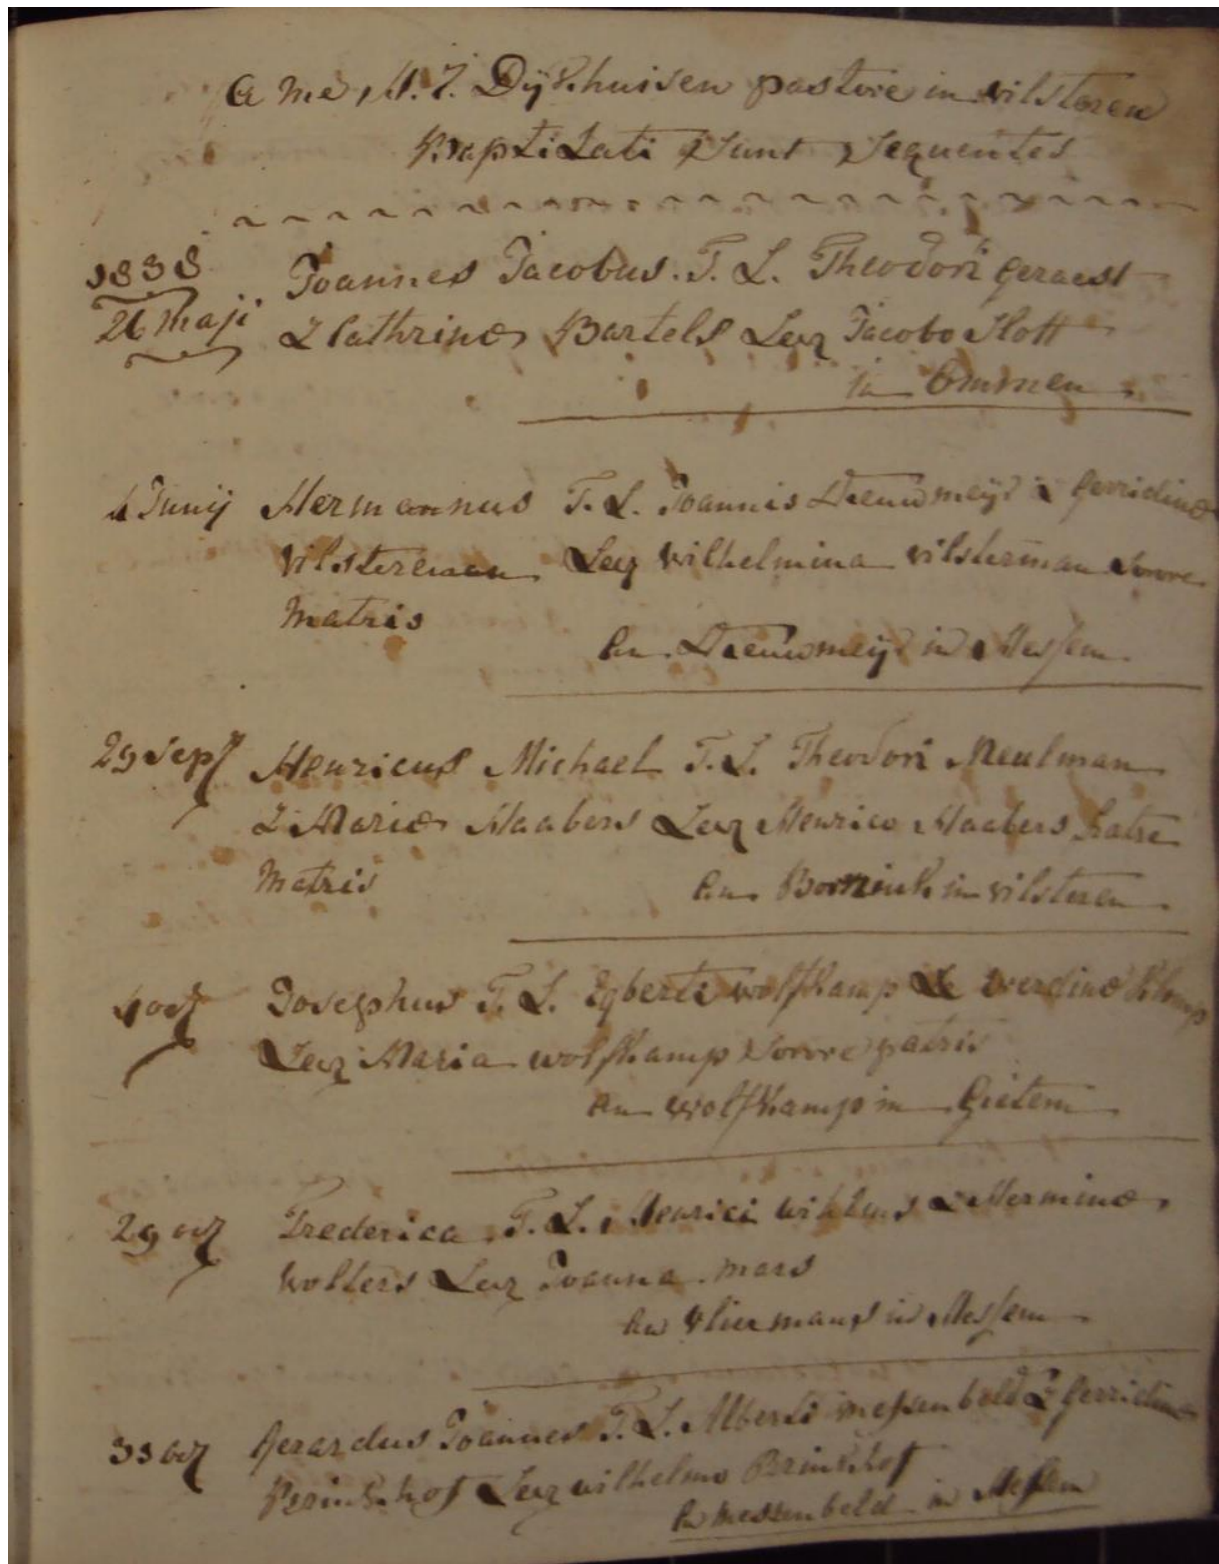 a me, H. J. Dijkhuisen pastore in vilsteren
Baptizati Sunt Sequentes
1838
26 maji Joannes Jacobus. F. L. Theodori
& Cathrinæ Bartels Lev Jacobo Slott
in Ommen
Junij Hermannus F. L. Joannis & Gerridinæ
Vilsterman Lev Wilhelmina vilsterman Sorore
Matris
in Hessem
29 Sept Henricus Michael F. L. Theodori Meulman
& Mariæ Haabers Lev Henrico Haabers fratre
Matris an in vilsteren
4 oct Josephus F. L. Egberti wolfkamp &
Lev Maria wolfkamp Sorore patris
an wolfkamp in Gietem
29 oct Frederica F. L. Henrici & Herminæ
Wolters Lev Joanna mars
an in Hessem
oct Gerardus Joannes F. L. Alberti messenbeld & Gerridinæ
Lev wilhelmo
an messenbeld in Hessem